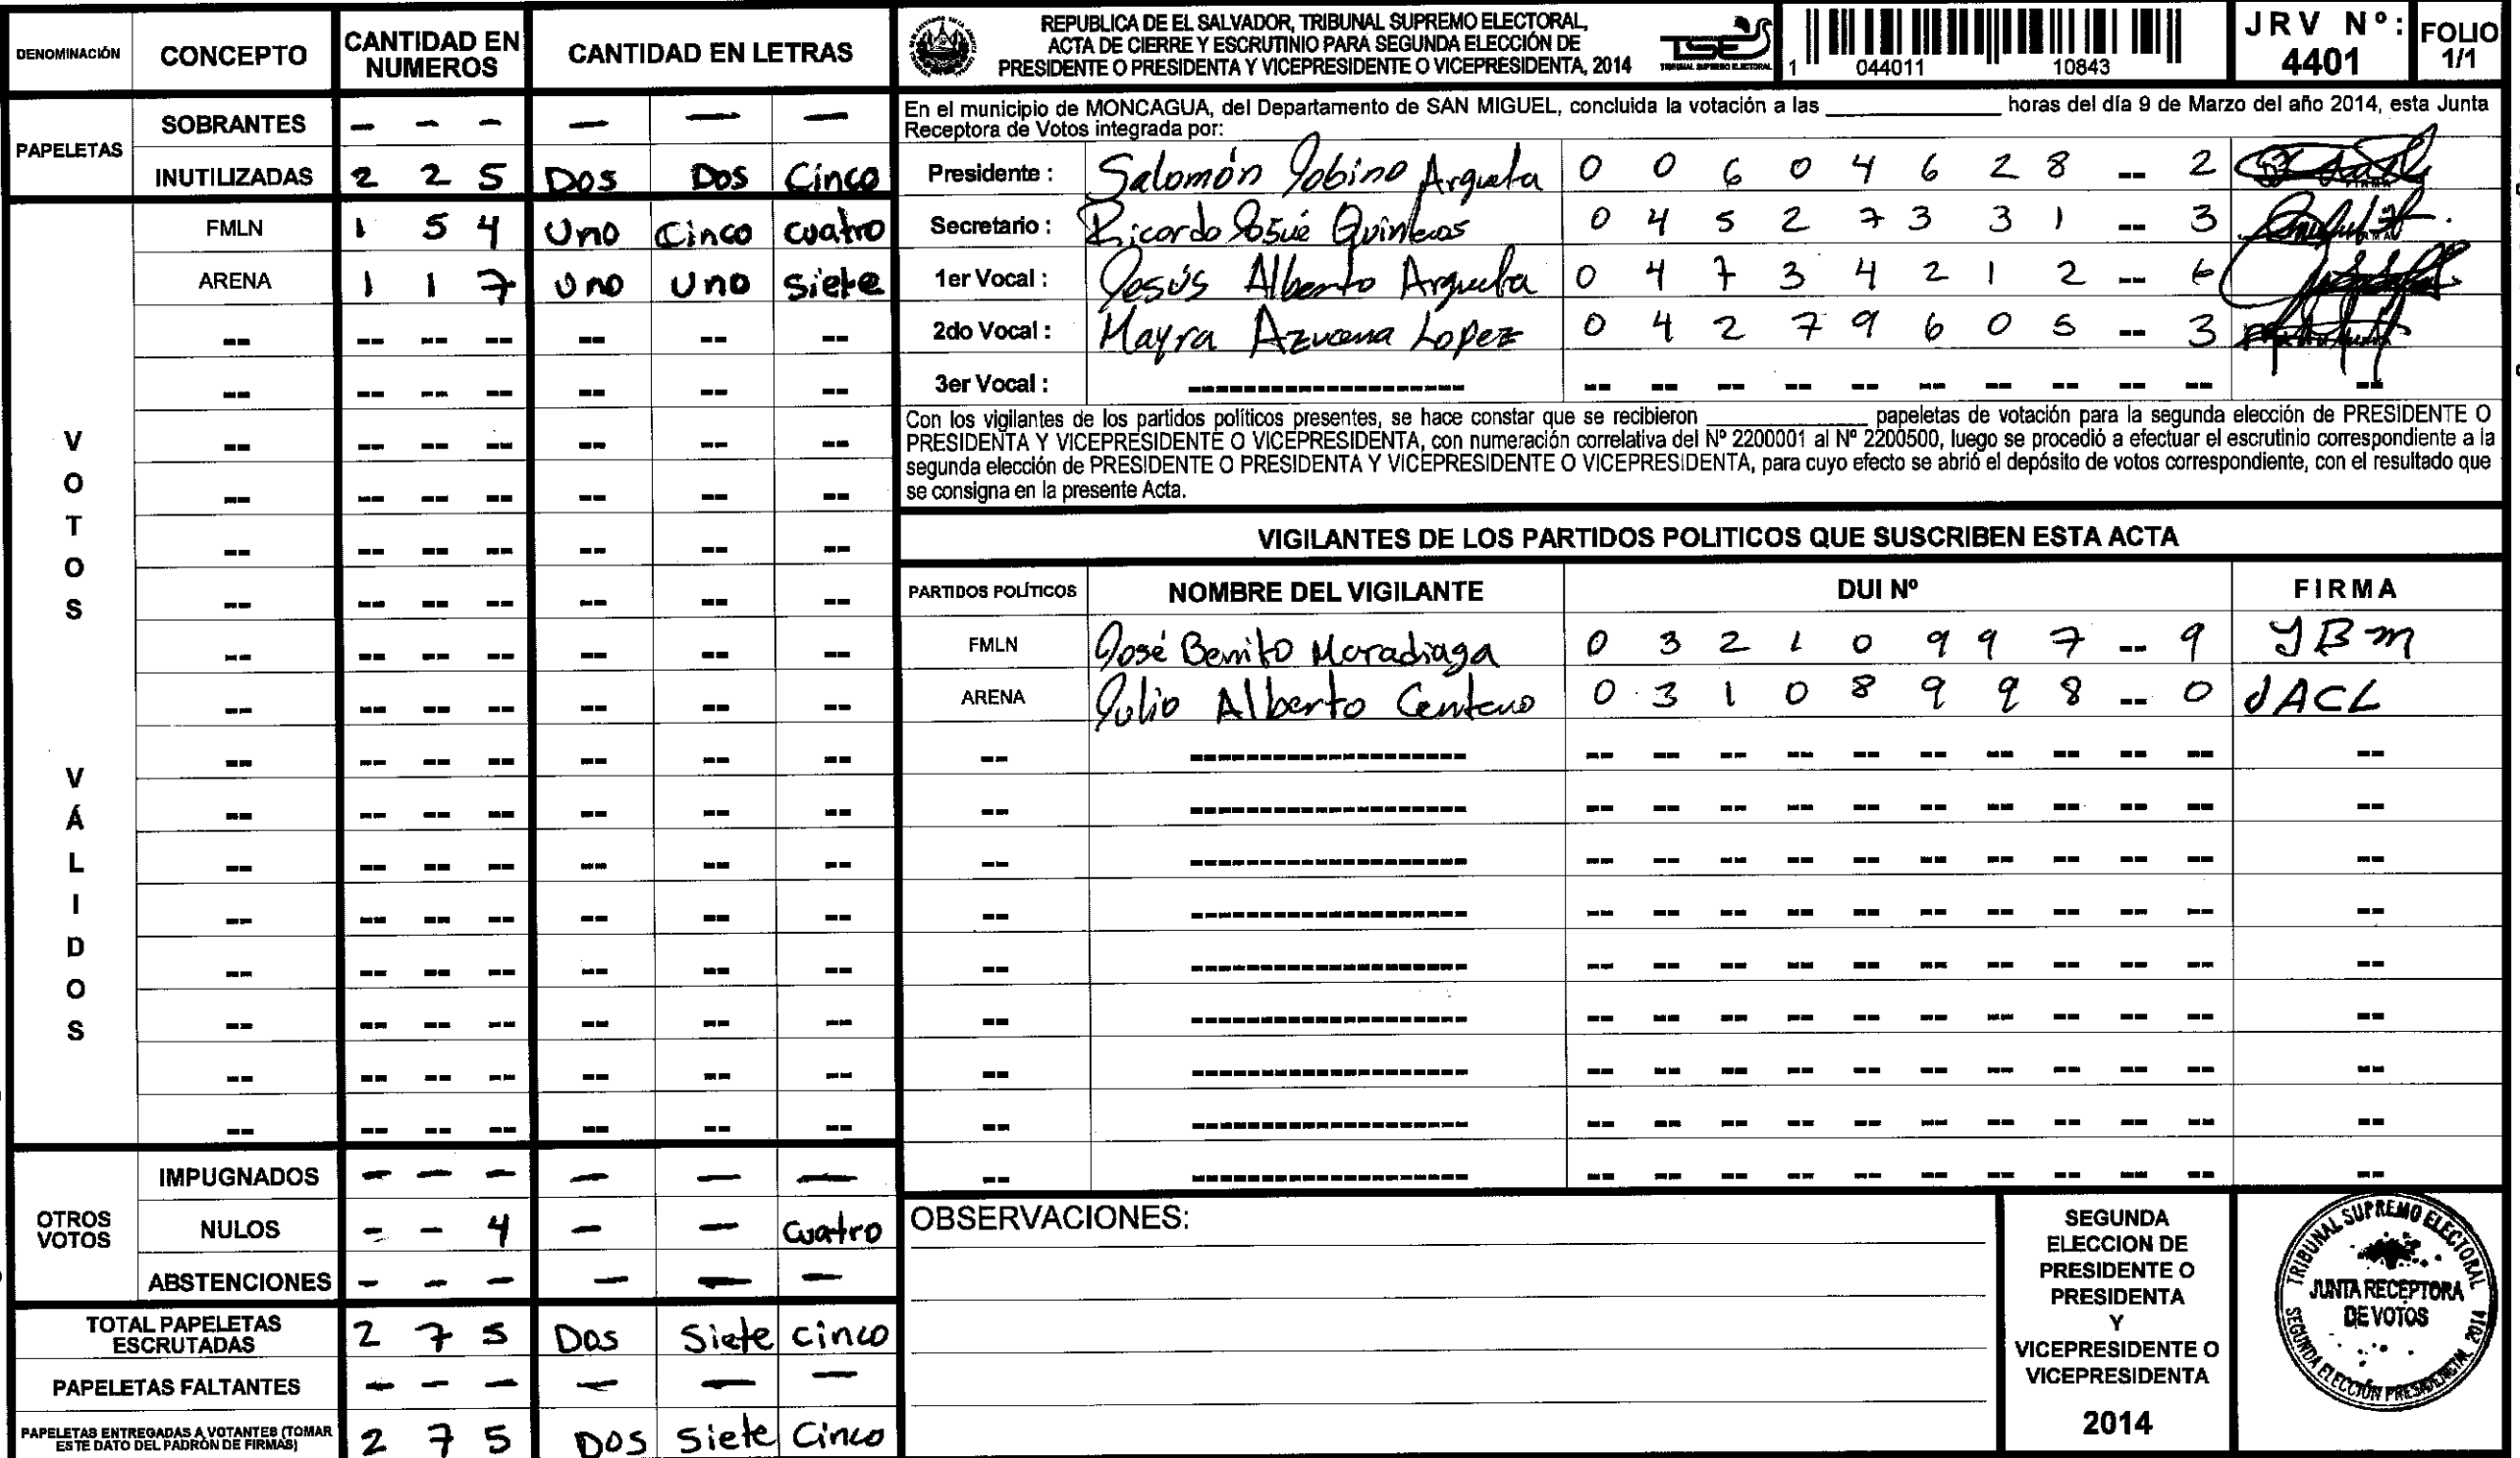 DENOMINACIÓN CONCEPTO CANTIDAD EN NUMEROS CANTIDAD EN LETRAS
PAPELETAS
SOBRANTES - - - - - -
INUTILIZADAS 2 2 5 Dos Dos Cinco
VOTOS VÁLIDOS
FMLN 1 5 4 Uno Cinco cuatro
ARENA 1 1 7 Uno Uno Siete
-- -- -- -- -- -- --
-- -- -- -- -- -- --
-- -- -- -- -- -- --
-- -- -- -- -- -- --
-- -- -- -- -- -- --
-- -- -- -- -- -- --
-- -- -- -- -- -- --
-- -- -- -- -- -- --
-- -- -- -- -- -- --
-- -- -- -- -- -- --
-- -- -- -- -- -- --
-- -- -- -- -- -- --
-- -- -- -- -- -- --
-- -- -- -- -- -- --
-- -- -- -- -- -- --
-- -- -- -- -- -- --
OTROS VOTOS
IMPUGNADOS - - - - - -
NULOS - - 4 - - cuatro
ABSTENCIONES - - - - - -
TOTAL PAPELETAS ESCRUTADAS 2 7 5 Dos Siete cinco
PAPELETAS FALTANTES - - - - - -
PAPELETAS ENTREGADAS A VOTANTES (TOMAR ESTE DATO DEL PADRÓN DE FIRMAS) 2 7 5 Dos Siete Cinco
REPUBLICA DE EL SALVADOR, TRIBUNAL SUPREMO ELECTORAL,
ACTA DE CIERRE Y ESCRUTINIO PARA SEGUNDA ELECCIÓN DE
PRESIDENTE O PRESIDENTA Y VICEPRESIDENTE O VICEPRESIDENTA, 2014
TSE
TRIBUNAL SUPREMO ELECTORAL
1 044011 10843
JRV Nº: 4401
FOLIO 1/1
En el municipio de MONCAGUA, del Departamento de SAN MIGUEL, concluida la votación a las ________ horas del día 9 de Marzo del año 2014, esta Junta
Receptora de Votos integrada por:
Presidente : Salomón Jobino Argueta 0 0 6 0 4 6 2 8 -- 2
Secretario : Ricardo Josué Quinteros 0 4 5 2 7 3 3 1 -- 3
1er Vocal : Jesús Alberto Argueta 0 4 7 3 4 2 1 2 -- 6
2do Vocal : Mayra Azucena Lopez 0 4 2 7 9 6 0 5 -- 3
3er Vocal : -------------------- -- -- -- -- -- -- -- -- -- -- --
Con los vigilantes de los partidos políticos presentes, se hace constar que se recibieron ________ papeletas de votación para la segunda elección de PRESIDENTE O
PRESIDENTA Y VICEPRESIDENTE O VICEPRESIDENTA, con numeración correlativa del Nº 2200001 al Nº 2200500, luego se procedió a efectuar el escrutinio correspondiente a la
segunda elección de PRESIDENTE O PRESIDENTA Y VICEPRESIDENTE O VICEPRESIDENTA, para cuyo efecto se abrió el depósito de votos correspondiente, con el resultado que
se consigna en la presente Acta.
VIGILANTES DE LOS PARTIDOS POLITICOS QUE SUSCRIBEN ESTA ACTA
PARTIDOS POLÍTICOS NOMBRE DEL VIGILANTE DUI Nº FIRMA
FMLN José Benito Moradiaga 0 3 2 1 0 9 9 7 -- 9 JBM
ARENA Julio Alberto Centeno 0 3 1 0 8 9 9 8 -- 0 JACL
-- -------------------- -- -- -- -- -- -- -- -- -- -- --
-- -------------------- -- -- -- -- -- -- -- -- -- -- --
-- -------------------- -- -- -- -- -- -- -- -- -- -- --
-- -------------------- -- -- -- -- -- -- -- -- -- -- --
-- -------------------- -- -- -- -- -- -- -- -- -- -- --
-- -------------------- -- -- -- -- -- -- -- -- -- -- --
-- -------------------- -- -- -- -- -- -- -- -- -- -- --
-- -------------------- -- -- -- -- -- -- -- -- -- -- --
-- -------------------- -- -- -- -- -- -- -- -- -- -- --
OBSERVACIONES:
SEGUNDA
ELECCION DE
PRESIDENTE O
PRESIDENTA
Y
VICEPRESIDENTE O
VICEPRESIDENTA
2014
TRIBUNAL SUPREMO ELECTORAL
JUNTA RECEPTORA
DE VOTOS
SEGUNDA ELECCIÓN PRESIDENCIAL 2014